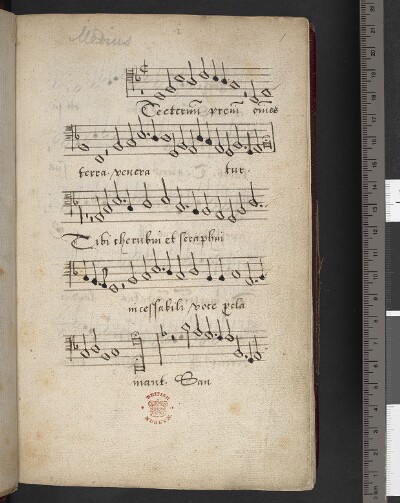 Medius
Te eternū prem̄ om̄es
terra venera tur
Tibi cherubin et seraphin
incessabili voce p̱cla
mant. San
BRITISH
MUSEUM